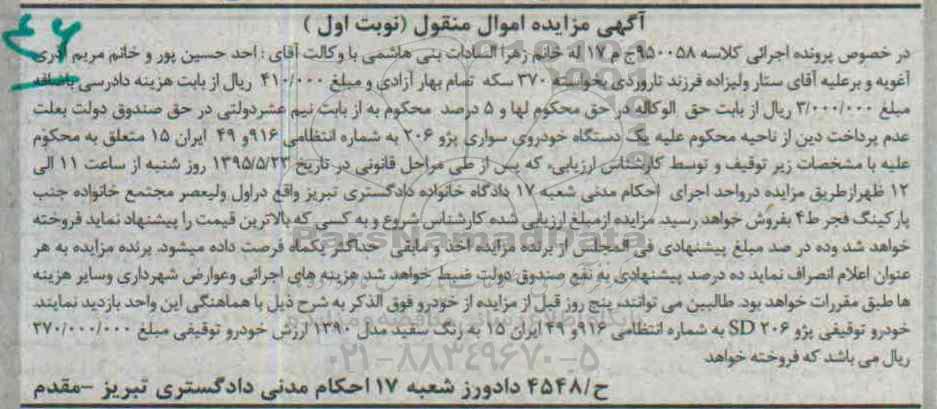 آگهی مزایده اموال منقول (نوبت اول )
در خصوص پرونده اجرائی کلاسه ۹۵۰۰۵۸ج م ۱۷ له خانم زهرا السادات بنی هاشمی با وکالت آقای : احد حسین پور و خانم مریم آذری
آغویه و برعلیه آقای ستار ولیزاده فرزند تاروردی بخواسته ۳۷۰ سکه تمام بهار آزادی و مبلغ ۴۱۰/۰۰۰ ریال از بابت هزینه دادرسی باضافه
مبلغ ۳/۰۰۰/۰۰۰ ریال از بابت حق الوکاله در حق محکوم لها و ۵ درصد محکوم به از بابت نیم عشردولتی در حق صندوق دولت بعلت
عدم پرداخت دین از ناحیه محکوم علیه یک دستگاه خودروی سواری پژو ۲۰۶ به شماره انتظامی ۹۱۶و ۴۹ ایران ۱۵ متعلق به محکوم
علیه با مشخصات زیر توقیف و توسط کارشناس ارزیابی، که پس از طی مراحل قانونی در تاریخ ۱۳۹۵/۵/۲۳ روز شنبه از ساعت ۱۱ الی
۱۲ ظهرازطریق مزایده درواحد اجرای احکام مدنی شعبه ۱۷ دادگاه خانواده دادگستری تبریز واقع دراول ولیعصر مجتمع خانواده جنب
پارکینگ فجر ط۴ بفروش خواهد رسید. مزایده ازمبلغ ارزیابی شده کارشناس شروع و به کسی که بالاترین قیمت را پیشنهاد نماید فروخته
خواهد شد وده در صد مبلغ پیشنهادی فی المجلس از برنده مزایده اخذ و مابقی حداکثر یکماه فرصت داده میشود. برنده مزایده به هر
عنوان اعلام انصراف نماید ده درصد پیشنهادی به نفع صندوق دولت ضبط خواهد شد هزینه های اجرائی وعوارض شهرداری وسایر هزینه
ها طبق مقررات خواهد بود. طالبین می توانند، پنج روز قبل از مزایده از خودرو فوق الذکر به شرح ذیل با هماهنگی این واحد بازدید نمایند.
خودرو توقیفی پژو ۲۰۶ SD به شماره انتظامی ۹۱۶و ۴۹ ایران ۱۵ به رنگ سفید مدل ۱۳۹۰ ارزش خودرو توقیفی مبلغ ۲۷۰/۰۰۰/۰۰۰
ریال می باشد که فروخته خواهد
ح/۴۵۴۸ دادورز شعبه ۱۷ احکام مدنی دادگستری تبریز -مقدم
ParsNamadData
۰۲۱-۸۸۳۴۹۶۷۰-۵